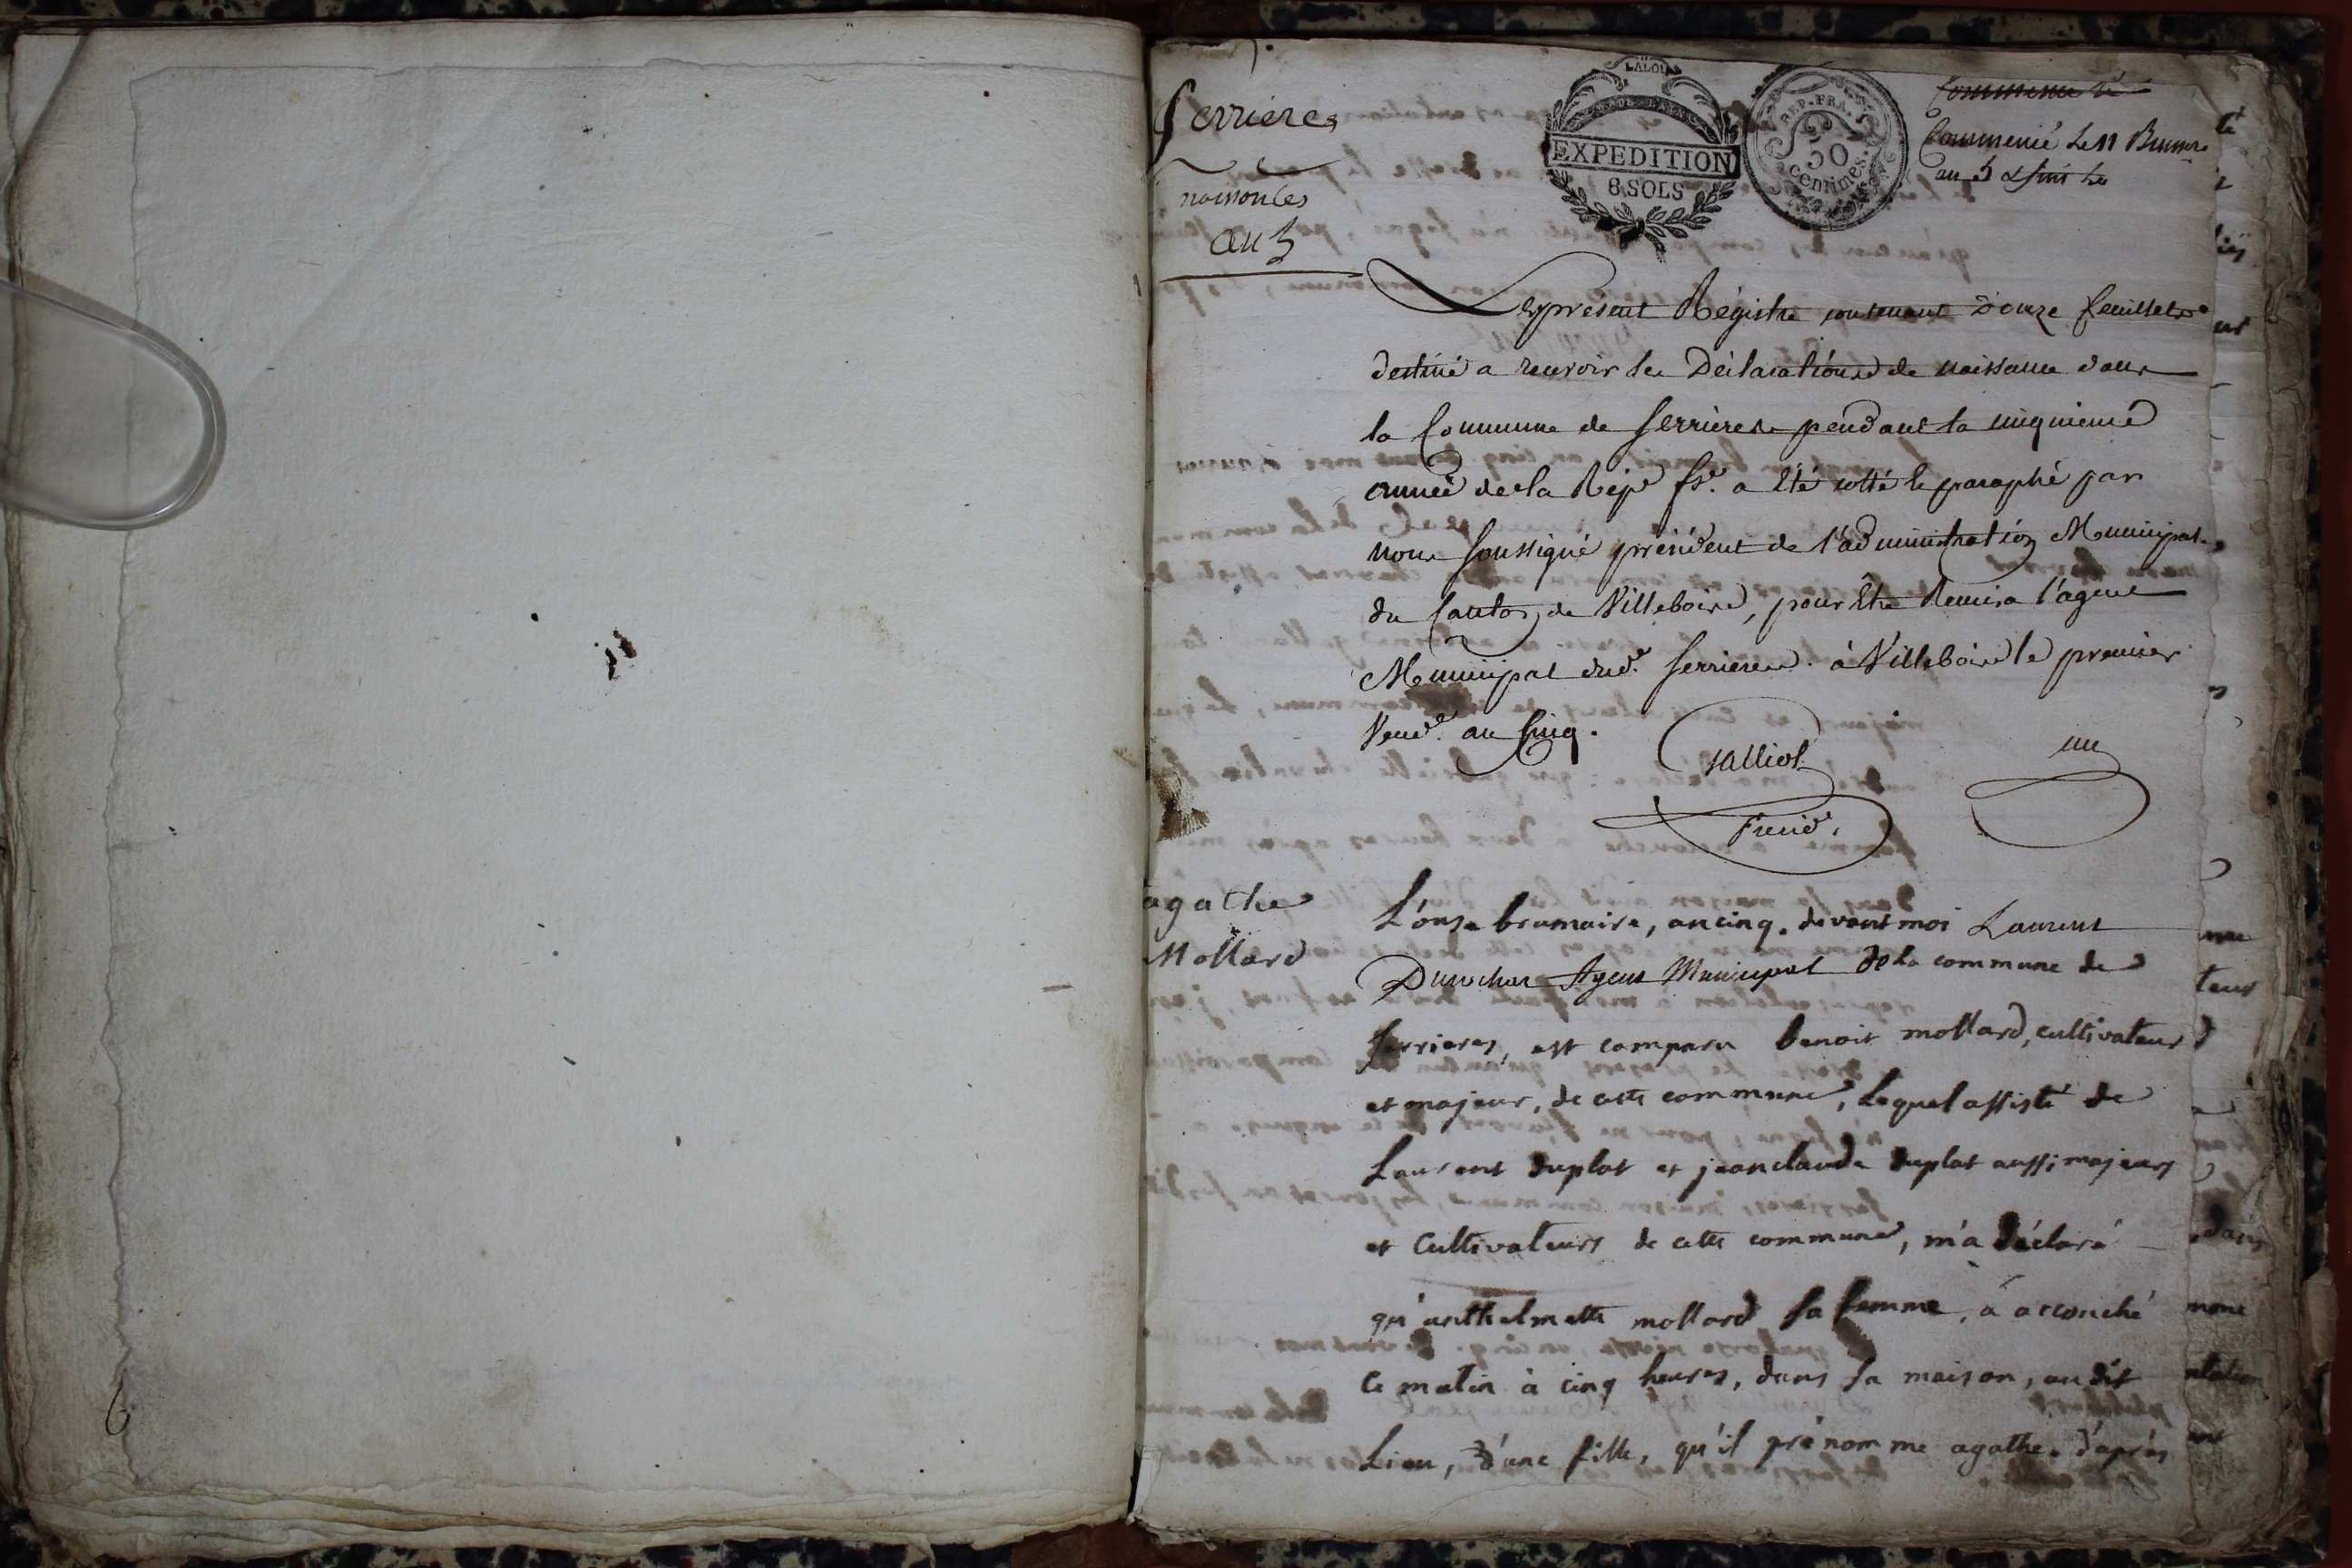 Serrieres
naissances
an 5
LALOU
EXPEDITION
8 SOLS
REP. FRA.
50
centimes.
Commencé le
Commencé le 11 Brumre
an 5 & fini le
Le présent Régistre contenant Douze feuillets
destiné a recevoir les Déclarations de naissance dans
la Commune de Serrieres pendant la cinquieme
année de la Rép.e fse. a été cotté & paraphé par
nous soussigné président de l'administration Municipale
du Canton de Villebois, pour être Remis a l'agent
Municipal dud. Serrieres. à Villebois le premier
Vend.e an Cinq.
un
Présid.
agathe
Mollard
L'onze brumaire, an cinq. devant moi Laurent
Durochat Agent Municipal de la commune de
serrieres, est comparu benoit mollard, cultivateur
et majeur, de cette commune, Lequel assisté de
Laurent duplat et jeanclaude duplat aussi majeurs
et Cultivateurs de cette commune, m'a déclaré
qu'anthelmette mollard sa femme, a accouché
ce matin à cinq heures, dans sa maison, au dit
Lieu, d'une fille, qu'il prénomme agathe. d'après